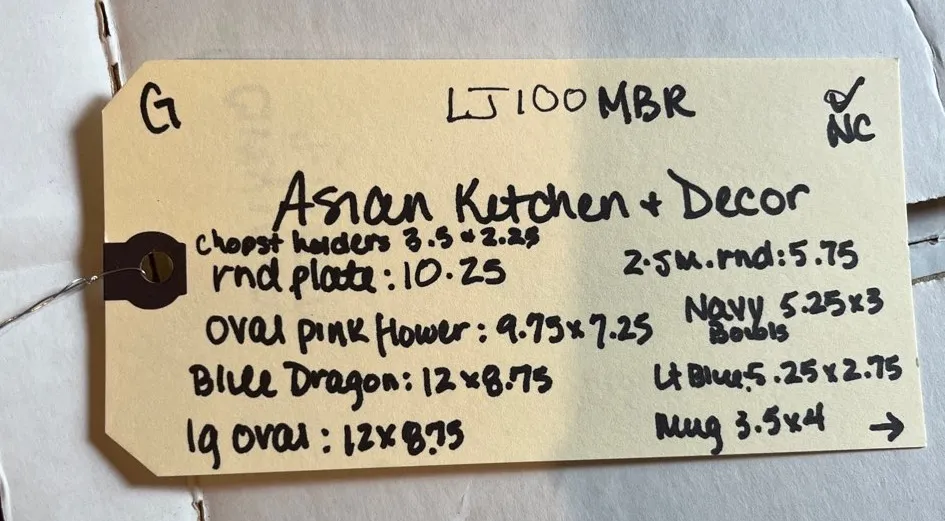 G
LJ100MBR
NC
Asian Kitchen + Decor
Chopst holders 3.5 x 2.25
rnd plate: 10.25
2. sm. rnd: 5.75
oval pink flower: 9.75 x 7.25
Navy 5.25 x 3
Bowls
Blue Dragon: 12 x 8.75
Lt Blue: 5.25 x 2.75
lg oval: 12 x 8.75
Mug 3.5 x 4 →